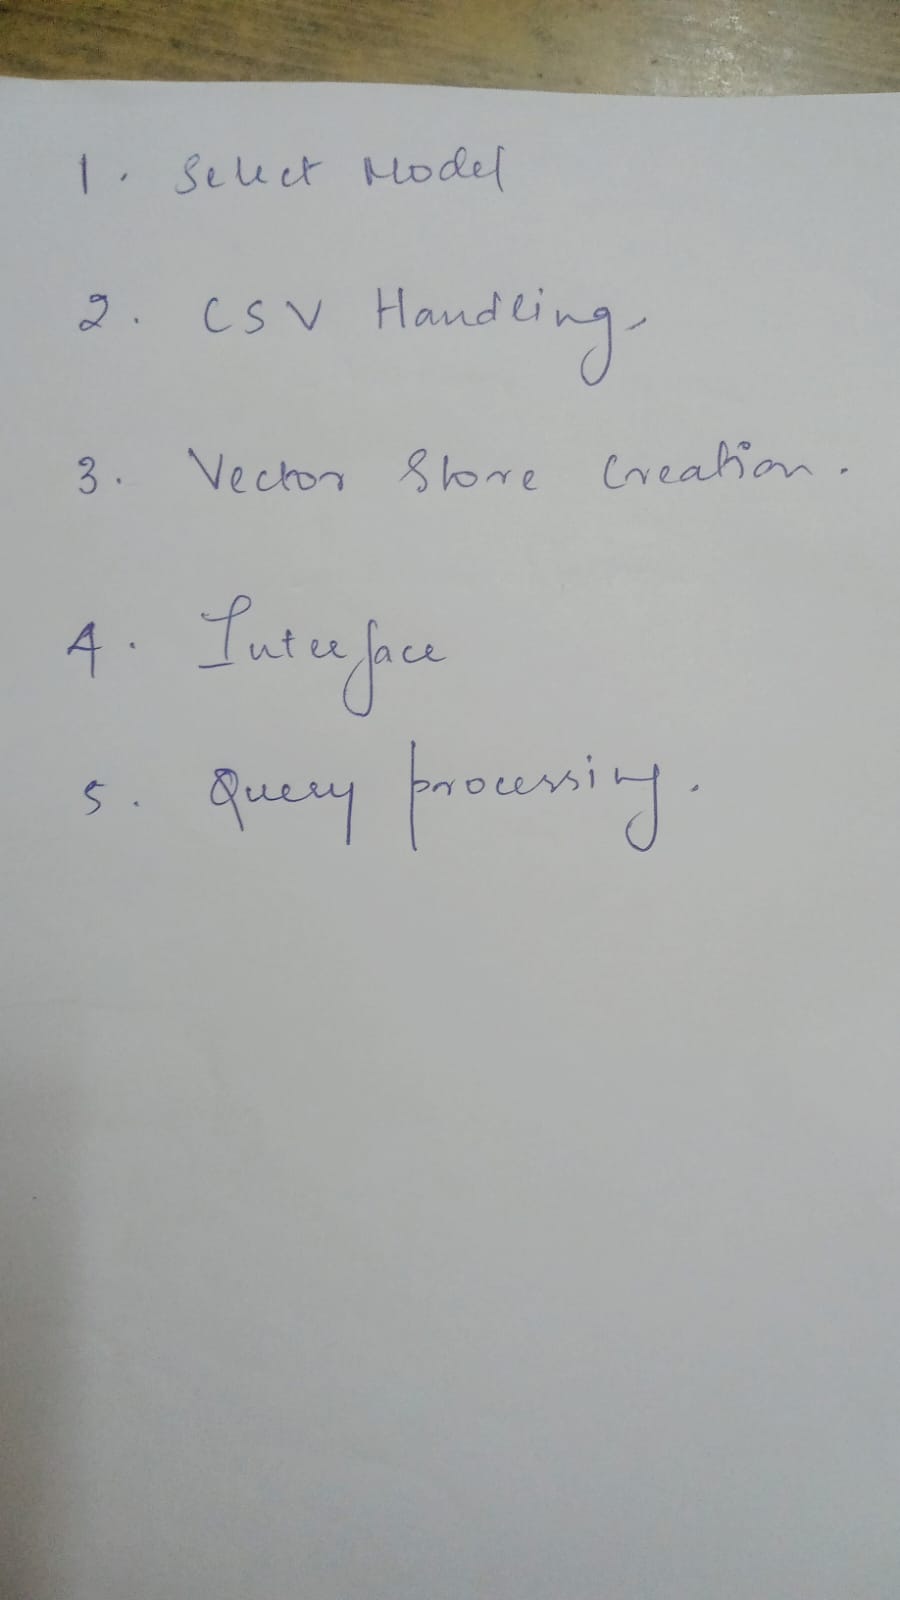 1. Select Model
2. CSV Handling.
3. Vector Store Creation.
4. Interface
5. Query processing.